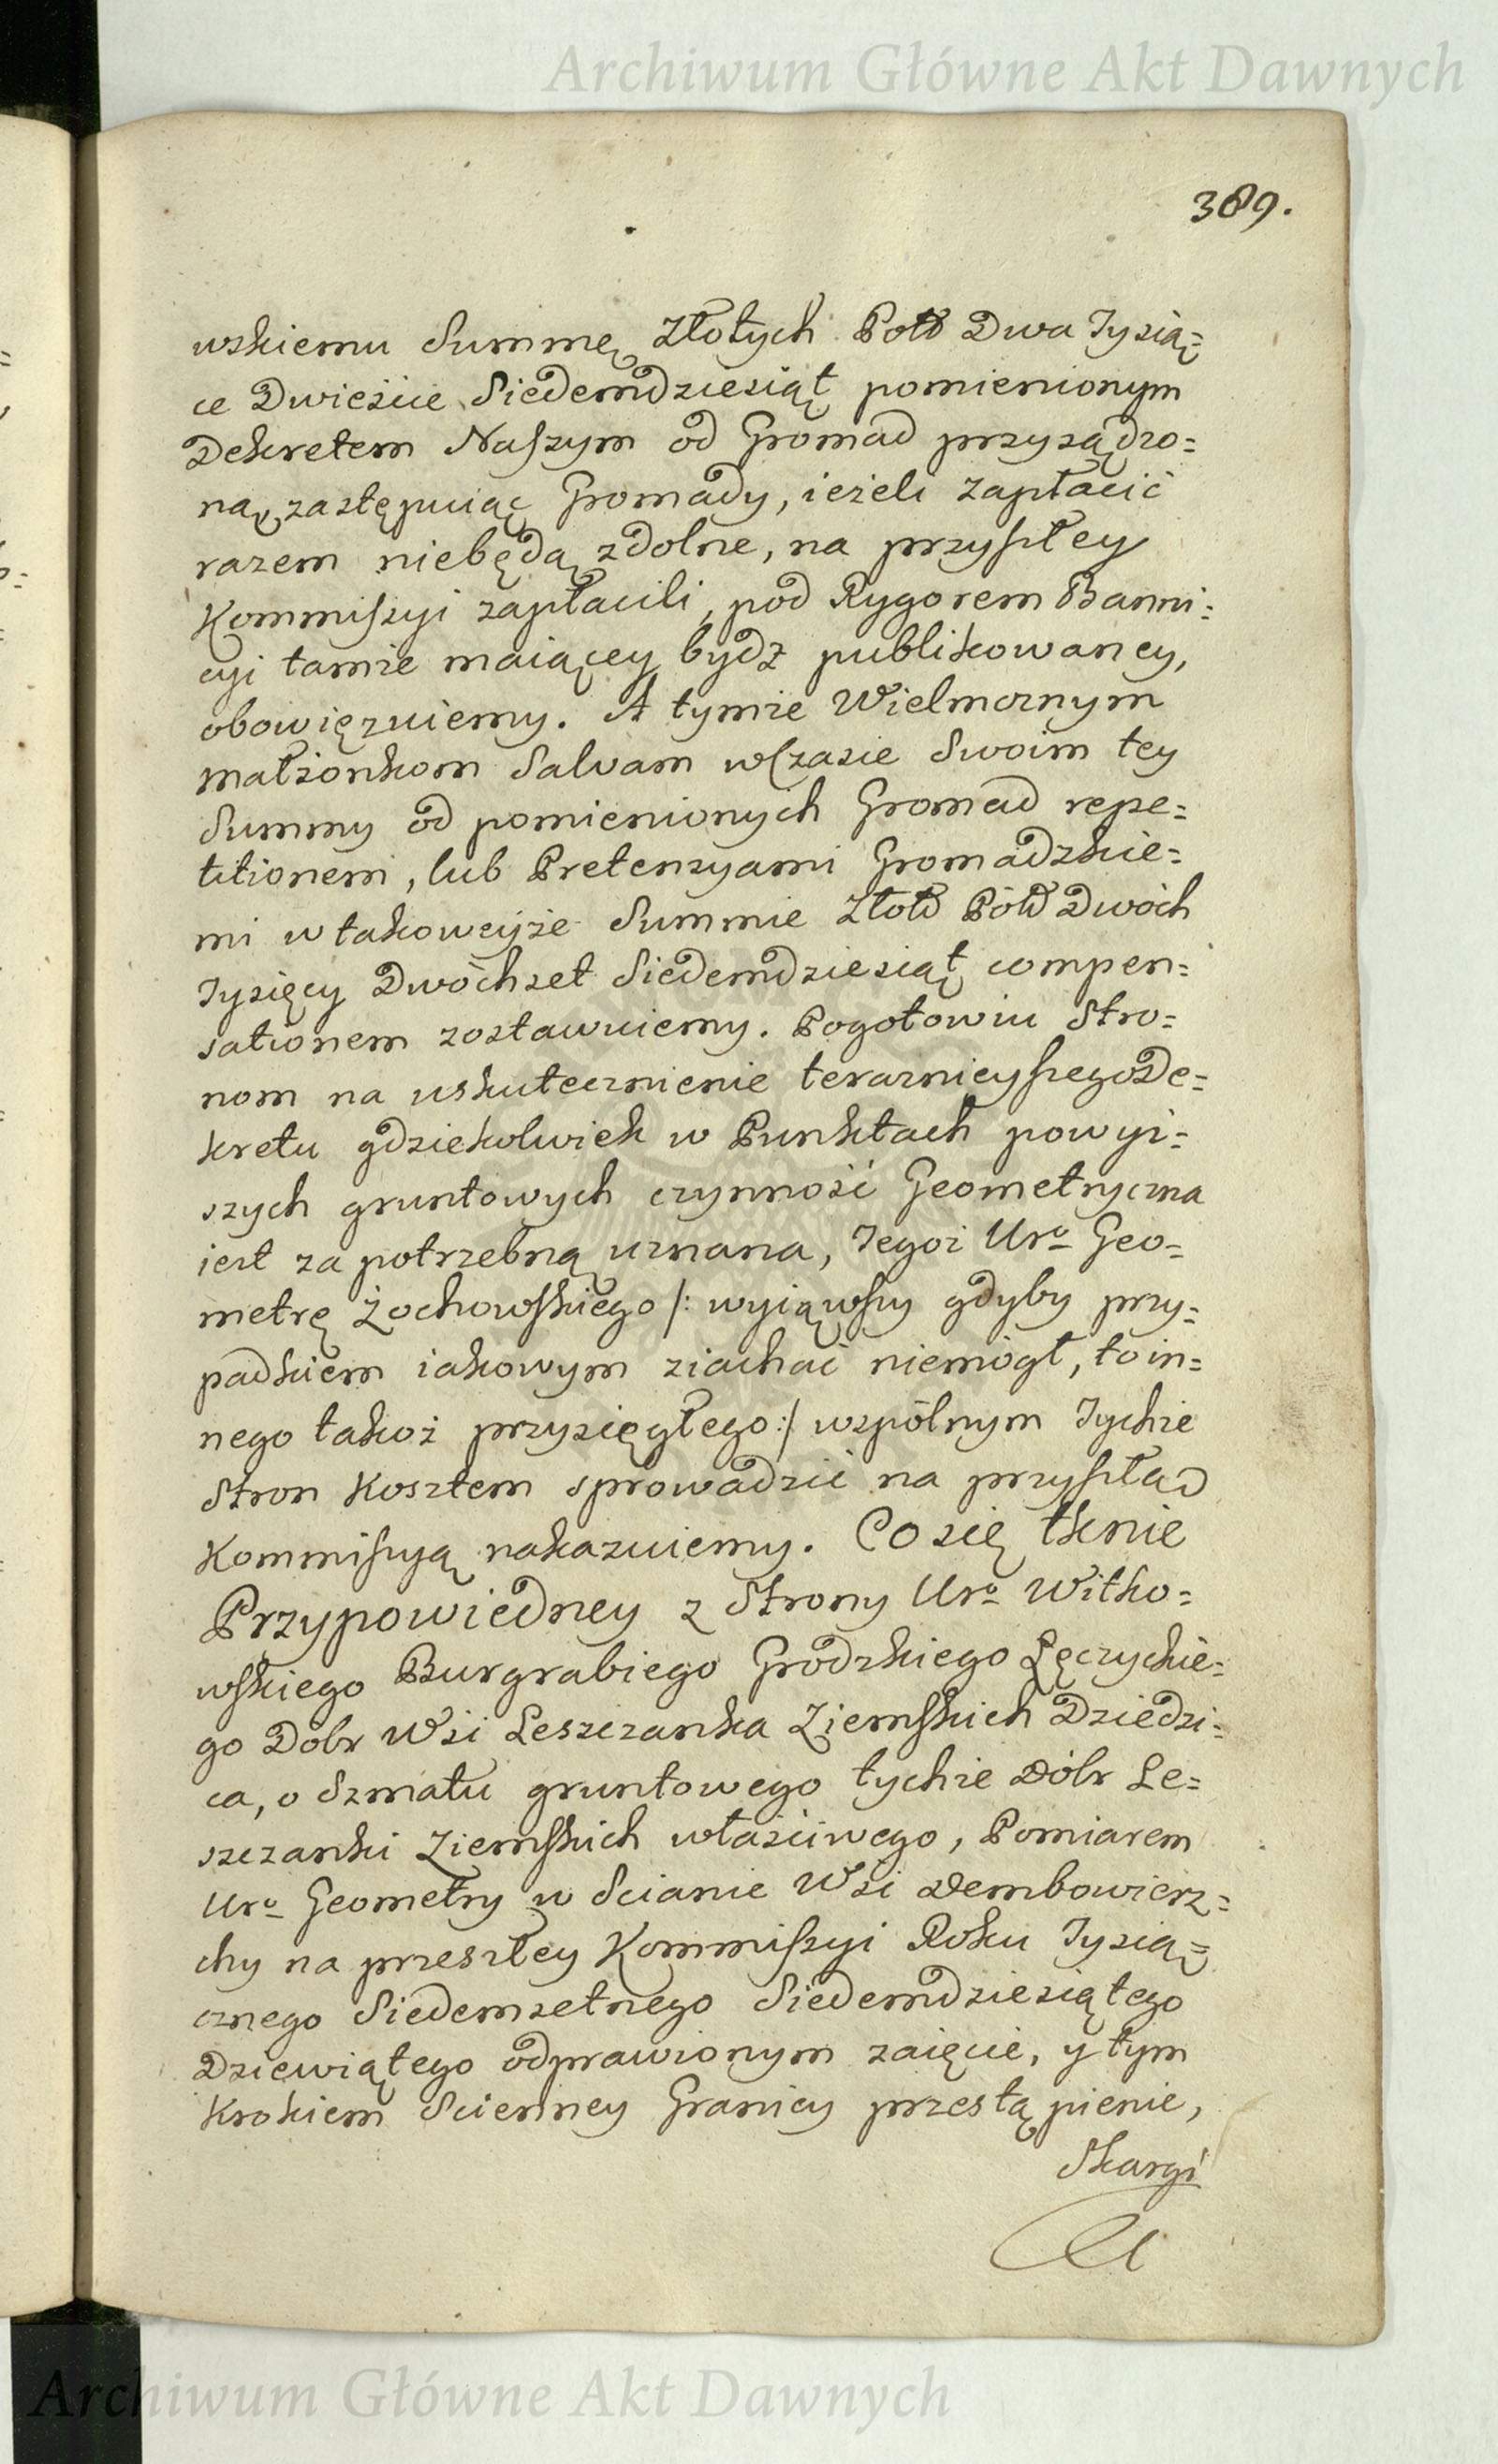 Archiwum Główne Akt Dawnych
389.
wskiemu Summę Złotych Polł Dwa Tysią=
ce Dwieście Siedemdziesiąt pomienionym
Dekretem Naszym od Gromad przysądzo=
ną, zastępuiąc Gromady, ieżeli zapłacić
razem niebędą zdolne, na przyszłey
Kommiszyi zapłacili, pod Rygorem Banni=
cyi tamże maiącey bydź publikowaney,
obowięzuiemy. A tymże Wielmożnym
małżonkom Salvam w Czasie Swoim tey
Summy od pomienionych Gromad repe=
titionem, lub Pretensyami Gromadzkie=
mi w takoweyże Summie Złotł Pólł Dwóch
Tysięcy Dwóchset Siedemdziesiąt compen=
sationem zostawuiemy. Pogotowiu Stro=
nom na uskutecznienie teraznieyszego De=
kretu gdziekolwiek w Punktach powyż=
szych gruntowych czynność Geometryczna
iest za potrzebną uznana, Tegoż Uro Geo=
metrę Żochowskiego /: wyiąwszy gdyby przy=
padkiem iakowym ziachać niemógł, to in=
nego takoż przysięgłego :/ wspólnym Tychże
Stron Kosztem sprowadzić na przyszłą
Kommiszyą nakazuiemy. Co się tknie
Przypowiedney z Strony Uro Witko=
wskiego Burgrabiego Grodzkiego Łęczyckie=
go Dóbr Wsi Leszczanka Ziemskich Dziedzi=
ca, o Szmatu gruntowego tychże Dóbr Le=
szczanki Ziemskich właściwego, Pomiarem
Uro Geometry w Scianie Wsi Dembowierz=
chy na przeszłey Kommiszyi Roku Tysią=
cznego Siedemsetnego Siedemdziesiątego
Dziewiątego odprawionym zaięcie, y tym
Krokiem Scienney Granicy przestąpienie,
Skargi
Archiwum Główne Akt Dawnych